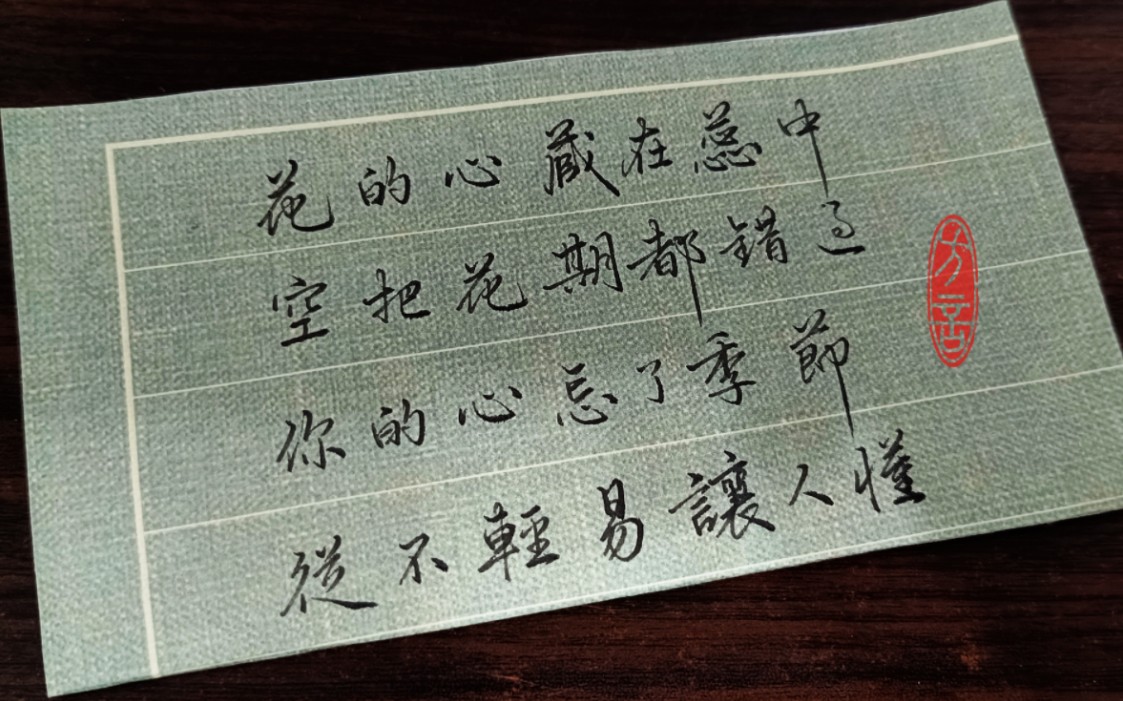 花的心藏在蕊中
空把花期都錯過
你的心忘了季節
從不輕易讓人懂